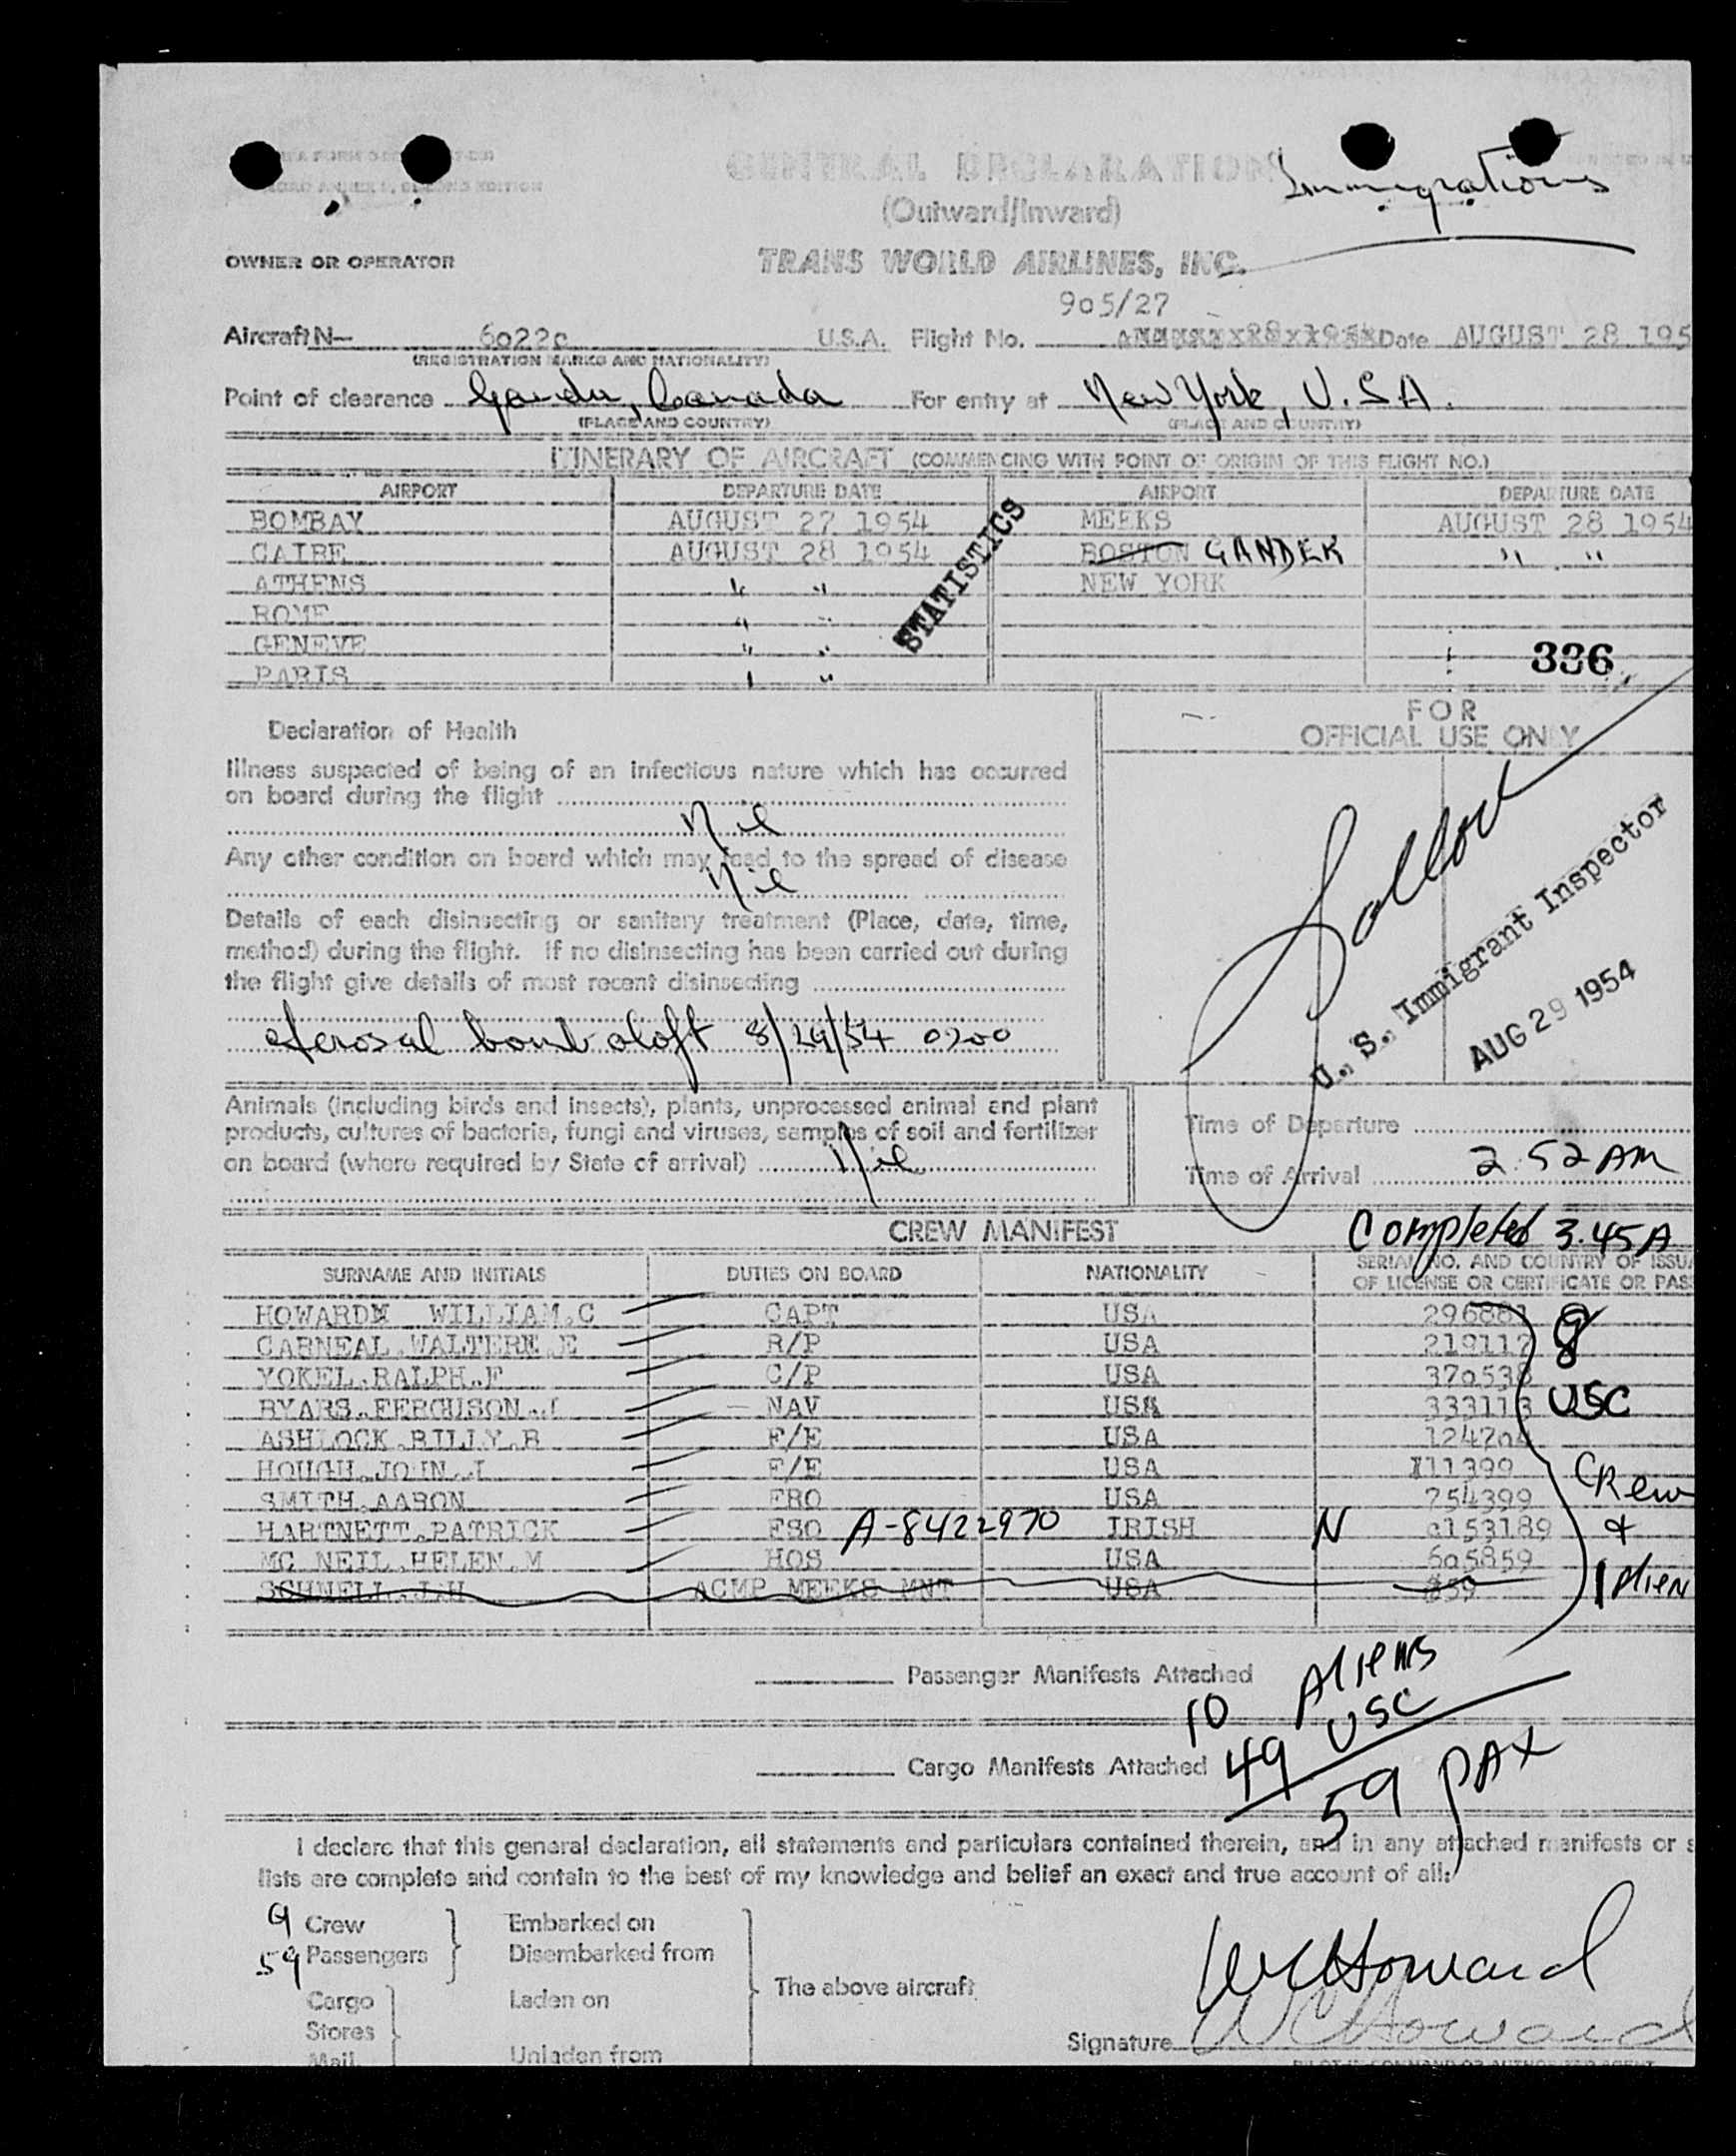 GENERAL DECLARATION
Immigrations
(Outward/Inward)
OWNER OR OPERATOR TRANS WORLD AIRLINES, INC.
905/27
Aircraft N— 6022c U.S.A. Flight No. Date AUGUST 28 195
(REGISTRATION MARKS AND NATIONALITY)
Point of clearance Gander, Canada For entry at New York, U.S.A.
(PLACE AND COUNTRY) (PLACE AND COUNTRY)
ITINERARY OF AIRCRAFT (COMMENCING WITH POINT OF ORIGIN OF THIS FLIGHT NO.)
AIRPORT DEPARTURE DATE AIRPORT DEPARTURE DATE
BOMBAY AUGUST 27 1954 MEEKS AUGUST 28 1954
CAIRE AUGUST 28 1954 BOSTON GANDER " "
ATHENS " " NEW YORK
ROME " "
GENEVE " "
PARIS " "
STATISTICS
336
Declaration of Health
FOR
OFFICIAL USE ONLY
Illness suspected of being of an infectious nature which has occurred
on board during the flight
Nil
Any other condition on board which may lead to the spread of disease
Nil
Details of each disinsecting or sanitary treatment (Place, date, time,
method) during the flight. If no disinsecting has been carried out during
the flight give details of most recent disinsecting
Aerosal bomb aloft 8/29/54 0200
U. S. Immigrant Inspector
AUG 29 1954
Animals (including birds and insects), plants, unprocessed animal and plant
products, cultures of bacteria, fungi and viruses, samples of soil and fertilizer
on board (where required by State of arrival) Nil
Time of Departure
Time of Arrival 2:52 AM
CREW MANIFEST Completed 3.45A
SURNAME AND INITIALS DUTIES ON BOARD NATIONALITY SERIAL NO. AND COUNTRY OF ISSU
OF LICENSE OR CERTIFICATE OR PASS
HOWARD WILLIAM.C CAPT USA 296881
CARNEAL.WALTERE.E R/P USA 219112
YOKEL.RALPH.F C/P USA 370538
BYARS.FERGUSON.J NAV USA 333113
ASHLOCK.BILLY.B F/E USA 124704
HOUGH.JOHN.J F/E USA 111399
SMITH.AARON FRO USA 254399
HARTNETT.PATRICK FSO A-8422970 IRISH N 0153189
MC NEIL.HELEN.M HOS USA 605859
SCHNELL.J.H ACMP MEEKS MNT USA 859
8
USC
Crew
+
1 Alien
Passenger Manifests Attached
10 Aliens
49 USC
59 PAX
Cargo Manifests Attached
I declare that this general declaration, all statements and particulars contained therein, and in any attached manifests or s
lists are complete and contain to the best of my knowledge and belief an exact and true account of all:
9 Crew Embarked on
59 Passengers Disembarked from
The above aircraft
Cargo Laden on
Stores
Mail Unladen from
WC Howard
Signature WC Howard